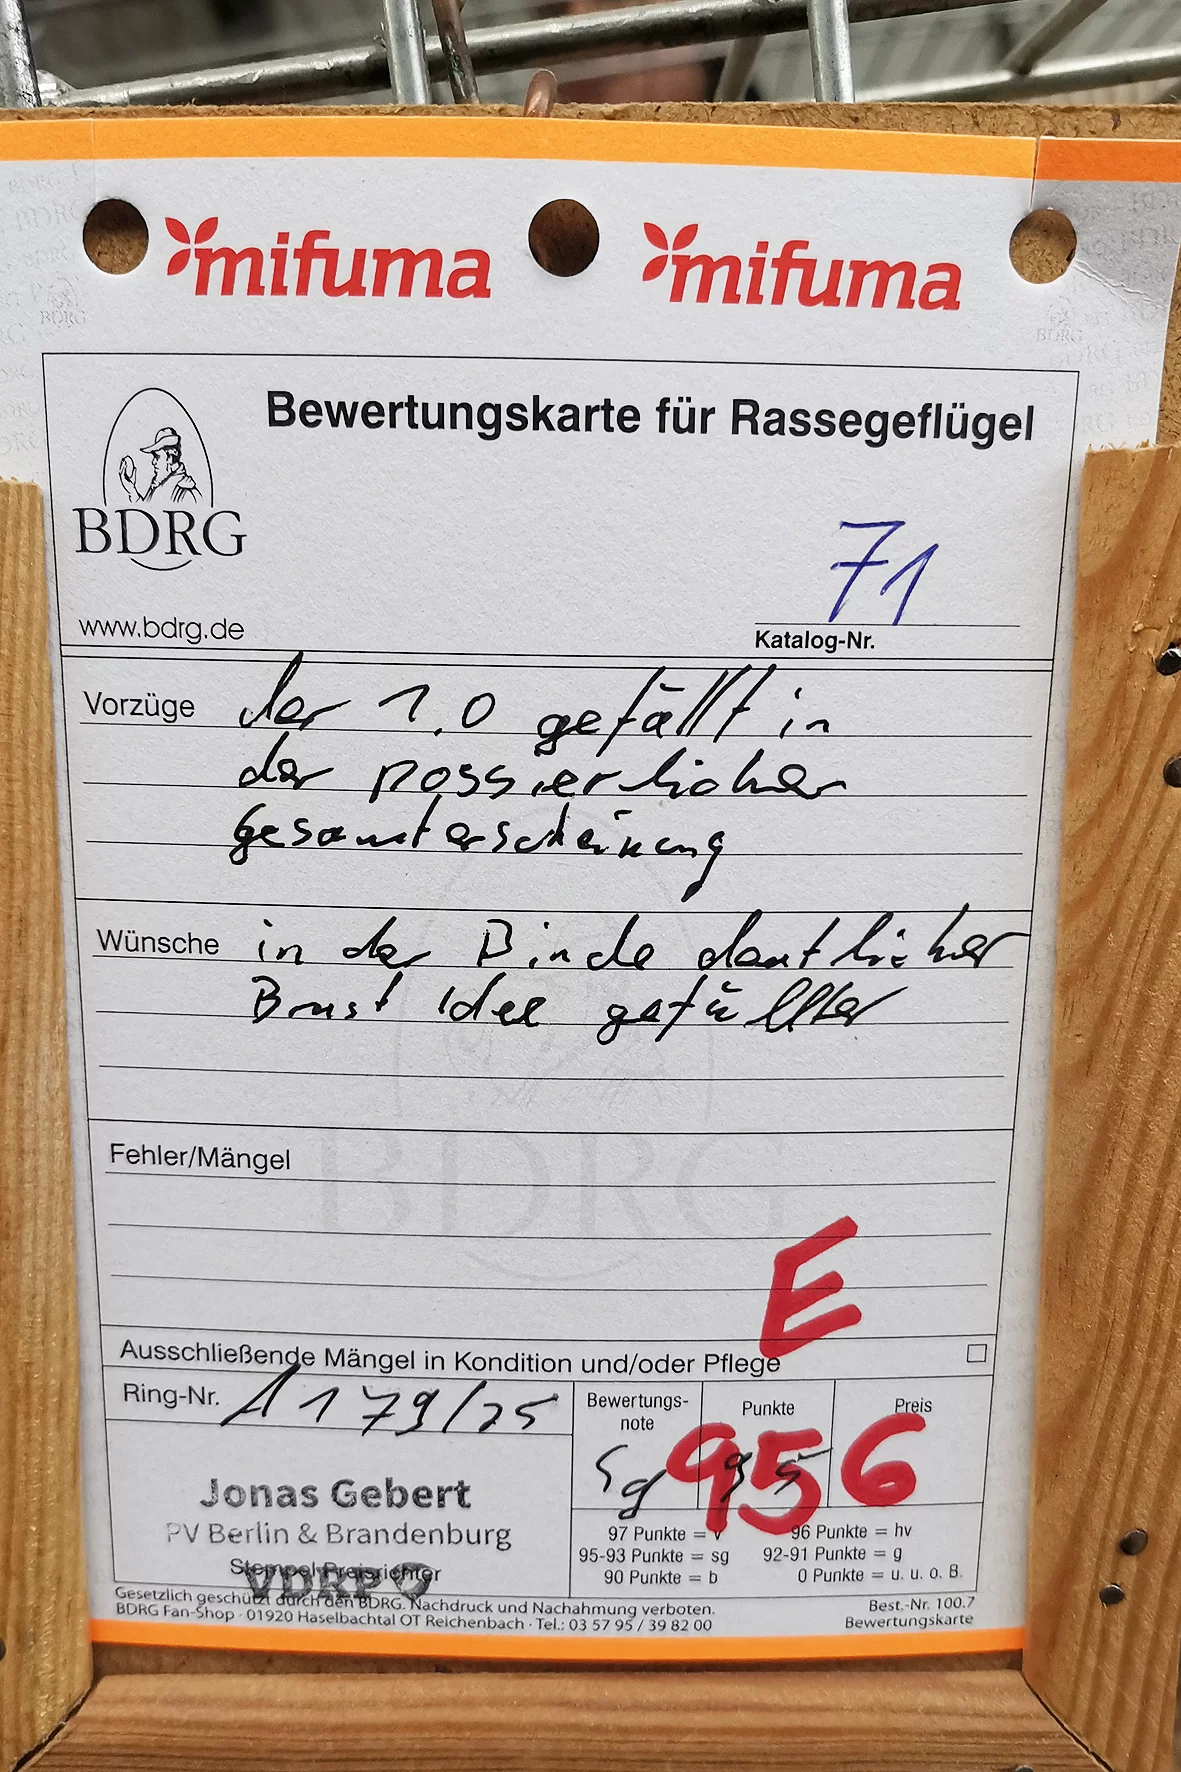 mifuma mifuma
Bewertungskarte für Rassegeflügel
BDRG
www.bdrg.de
71
Katalog-Nr.
Vorzüge der 1,0 gefällt in
der possierlicher
Gesamterscheinung
Wünsche in der Binde deutlicher
Brust Idee gefüllter
Fehler/Mängel
E
Ausschließende Mängel in Kondition und/oder Pflege
Ring-Nr. A 179/25
Bewertungs-
note
Punkte
Preis
sg 95
95 6
Jonas Gebert
PV Berlin & Brandenburg
Stempel Preisrichter
VDRP
97 Punkte = v 96 Punkte = hv
95-93 Punkte = sg 92-91 Punkte = g
90 Punkte = b 0 Punkte = u. u. o. B.
Gesetzlich geschützt durch den BDRG. Nachdruck und Nachahmung verboten.
BDRG Fan-Shop · 01920 Haselbachtal OT Reichenbach · Tel.: 03 57 95 / 39 82 00
Best.-Nr. 100.7
Bewertungskarte